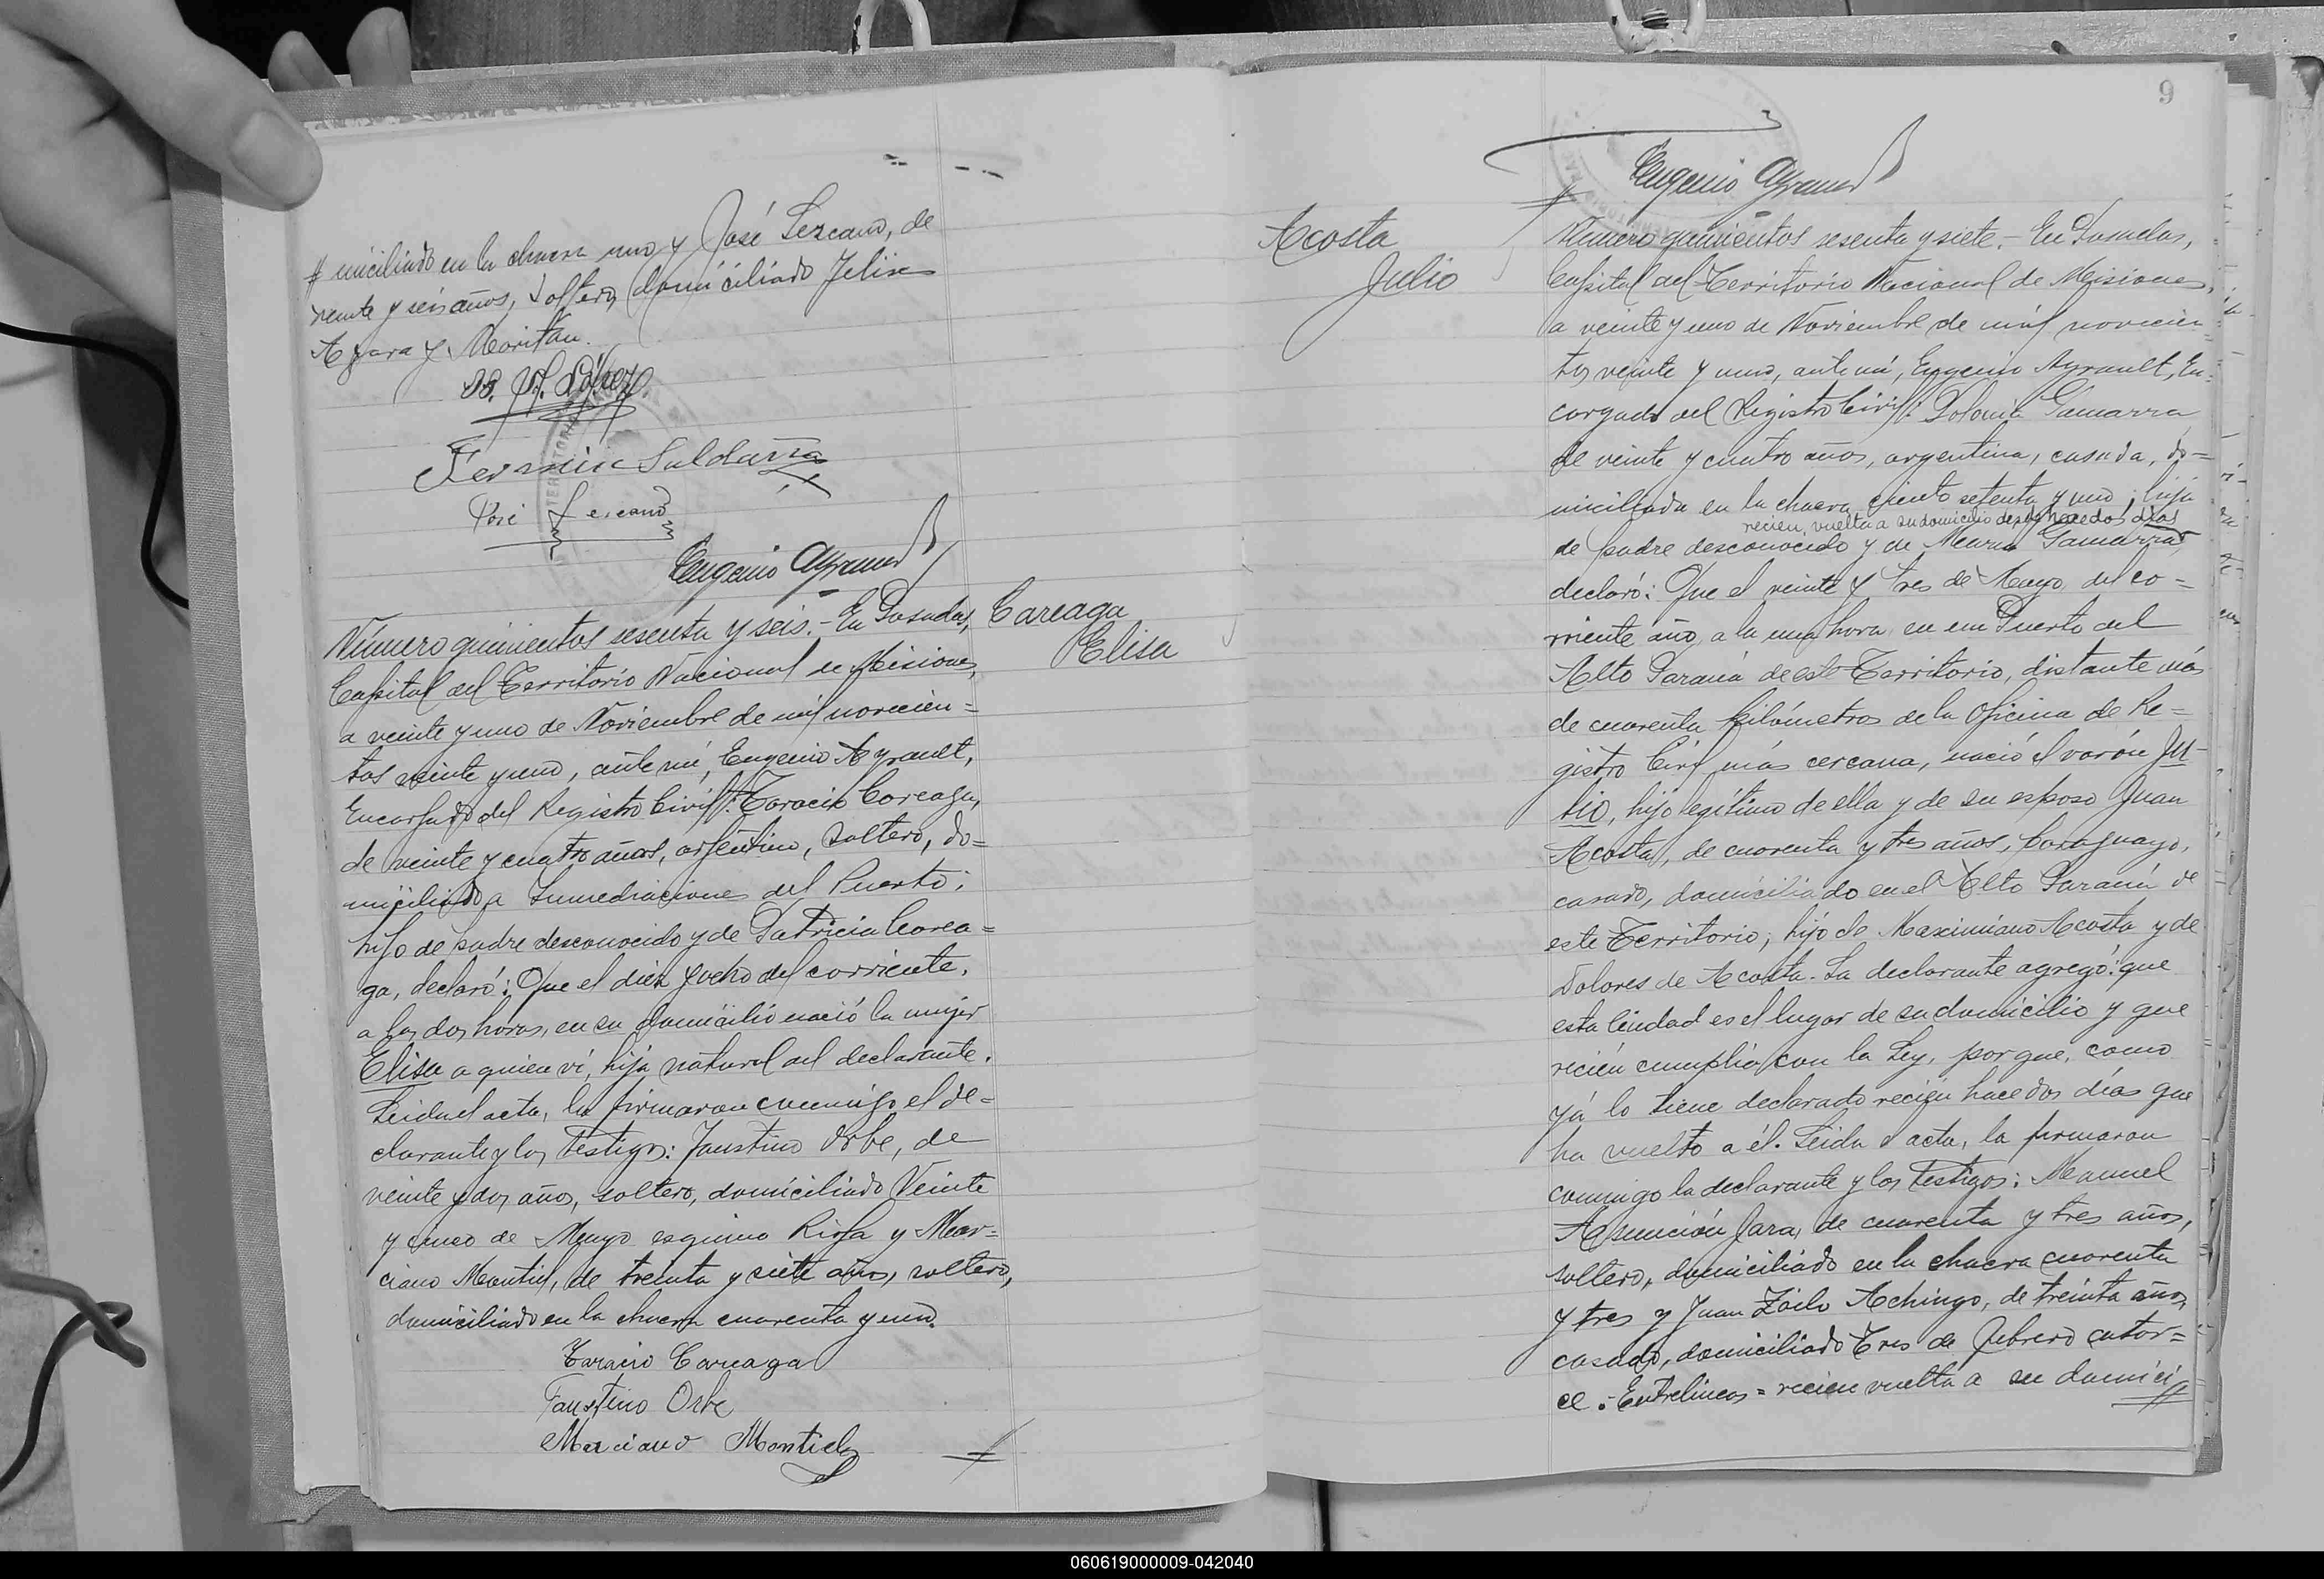 # miciliado en la chacra uno y José Lezcano, de
veinte y seis años, soltero, domiciliado Felix
Azara y Moritan.
Fermin Saldaña
José Lezcano
Eugenio Ayrault
Número quinientos sesenta y seis.- En Posadas,
Careaga
Elisa
Capital del Territorio Nacional de Misiones,
a veinte y uno de Noviembre de mil novecien=
tos veinte y uno, ante mí, Eugenio Ayrault,
Encargado del Registro Civil: Taracio Careaga,
de veinte y cuatro años, argentino, soltero, do=
miciliado a Inmediaciones del Puerto;
hijo de padre desconocido y de Patricia Carea=
ga, declaró: Que el diez y ocho del corriente,
a las dos horas, en su domicilio nació la mujer
Elisa a quien ví, hija natural del declarante.
Leida el acta, la firmaron conmigo el de=
clarante y los testigos: Faustino Orbe, de
veinte y dos años, soltero, domiciliado Veinte
y cinco de Mayo esquina Rioja y Mar=
ciano Montiel, de treinta y siete años, soltero,
domiciliado en la chacra cuarenta y uno.
Taracio Careaga
Faustino Orbe
Marciano Montiel
9
Eugenio Ayrault
Acosta
Julio
Número quinientos sesenta y siete.- En Posadas,
Capital del Territorio Nacional de Misiones,
a veinte y uno de Noviembre de mil novecien
tos veinte y uno, ante mí, Eugenio Ayrault, En=
cargado del Registro Civil: Polonia Gamarra
de veinte y cuatro años, argentina, casada, do=
miciliada en la chacra ciento setenta y uno; hija
recien vuelta a su domicilio desde hace dos días
de padre desconocido y de María Gamarra,
declaró: Que el veinte y tres de Mayo del co=
rriente año, a la una hora, en un Puerto del
Alto Paraná de este Territorio, distante más
de cuarenta kilómetros de la Oficina de Re=
gistro Civil más cercana, nació el varón Ju-
lio, hijo legítimo de ella y de su esposo Juan
Acosta, de cuarenta y tres años, paraguayo,
casado, domiciliado en el Alto Paraná de
este Territorio; hijo de Maximiano Acosta y de
Dolores de Acosta. La declarante agregó: que
esta Ciudad es el lugar de su domicilio y que
recién cumplía con la Ley, porque, como
yá lo tiene declarado recién hace dos días que
ha vuelto a él. Leida el acta, la firmaron
conmigo la declarante y los testigos: Manuel
Asunción Jara, de cuarenta y tres años,
soltero, domiciliado en la chacra cuarenta
y tres y Juan Zoilo Achingo, de treinta años,
casado, domiciliado Tres de Febrero cator=
ce.- Entrelineas = recien vuelta a su domici
060619000009-042040